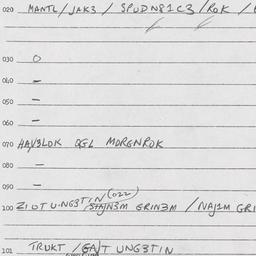 020 MANTL/JAK3 / SPUDN81C3 /ROK /
030 O
040 –
050 –
060 –
070 HAV3LOK OGL MORGNROK
080 –
090 –
(022)
100 ZIOTUNG3TIN /STAJN3M GRIN3M /NAJ1M GRI
101 TRUKT /GAJT UNG3TIN